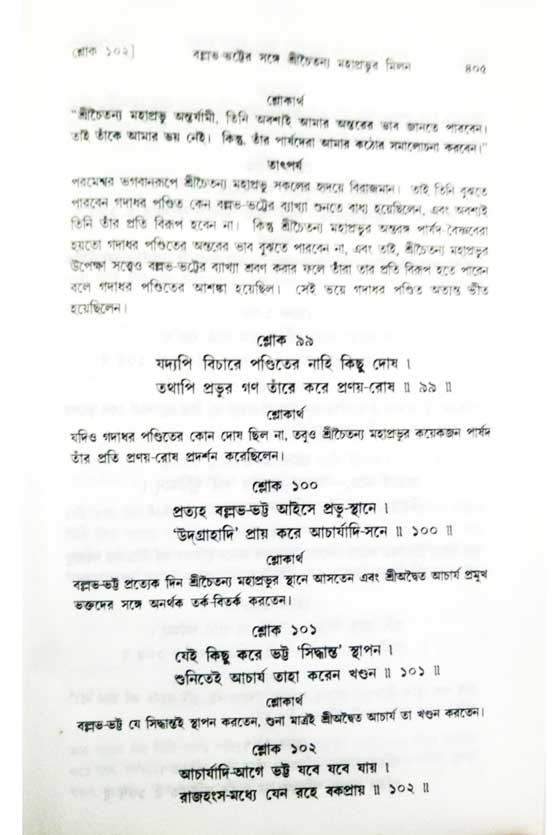 [শ্লোক ১০২]
বল্লভ-ভট্টের সঙ্গে শ্রীচৈতন্য মহাপ্রভুর মিলন
৪০৫
শ্লোকার্থ
"শ্রীচৈতন্য মহাপ্রভু অন্তর্যামী, তিনি অবশ্যই আমার অন্তরের ভাব জানতে পারবেন।
তাই তাঁকে আমার ভয় নেই। কিন্তু, তাঁর পার্ষদেরা আমার কঠোর সমালোচনা করবেন।"
তাৎপর্য
পরমেশ্বর ভগবানরূপে শ্রীচৈতন্য মহাপ্রভু সকলের হৃদয়ে বিরাজমান। তাই তিনি বুঝতে
পারবেন গদাধর পণ্ডিত কেন বল্লভ-ভট্টের ব্যাখ্যা শুনতে বাধ্য হয়েছিলেন, এবং অবশ্যই
তিনি তাঁর প্রতি বিরূপ হবেন না। কিন্তু শ্রীচৈতন্য মহাপ্রভুর অন্তরঙ্গ পার্ষদ-বৈষ্ণবেরা
হয়তো গদাধর পণ্ডিতের অন্তরের ভাব বুঝতে পারবেন না, এবং তাই, শ্রীচৈতন্য মহাপ্রভুর
উপেক্ষা সত্ত্বেও বল্লভ-ভট্টের ব্যাখ্যা শ্রবণ করার ফলে তাঁরা তার প্রতি বিরূপ হতে পারেন
বলে গদাধর পণ্ডিতের আশঙ্কা হয়েছিল। সেই ভয়ে গদাধর পণ্ডিত অত্যন্ত ভীত
হয়েছিলেন।
শ্লোক ৯৯
যদ্যপি বিচারে পণ্ডিতের নাহি কিছু দোষ ।
তথাপি প্রভুর গণ তাঁরে করে প্রণয়-রোষ ॥ ৯৯ ॥
শ্লোকার্থ
যদিও গদাধর পণ্ডিতের কোন দোষ ছিল না, তবুও শ্রীচৈতন্য মহাপ্রভুর কয়েকজন পার্ষদ
তাঁর প্রতি প্রণয়-রোষ প্রদর্শন করেছিলেন।
শ্লোক ১০০
প্রত্যহ বল্লভ-ভট্ট আইসে প্রভু-স্থানে ।
'উদ্‌গ্রাহাদি' প্রায় করে আচার্যাদি-সনে ॥ ১০০ ॥
শ্লোকার্থ
বল্লভ-ভট্ট প্রত্যেক দিন শ্রীচৈতন্য মহাপ্রভুর স্থানে আসতেন এবং শ্রীঅদ্বৈত আচার্য প্রমুখ
ভক্তদের সঙ্গে অনর্থক তর্ক-বিতর্ক করতেন।
শ্লোক ১০১
যেই কিছু করে ভট্ট 'সিদ্ধান্ত' স্থাপন ।
শুনিতেই আচার্য তাহা করেন খণ্ডন ॥ ১০১ ॥
শ্লোকার্থ
বল্লভ-ভট্ট যে সিদ্ধান্তই স্থাপন করতেন, শুনা মাত্রই শ্রীঅদ্বৈত আচার্য তা খণ্ডন করতেন।
শ্লোক ১০২
আচার্যাদি-আগে ভট্ট যবে যবে যায় ।
রাজহংস-মধ্যে যেন রহে বকপ্রায় ॥ ১০২ ॥